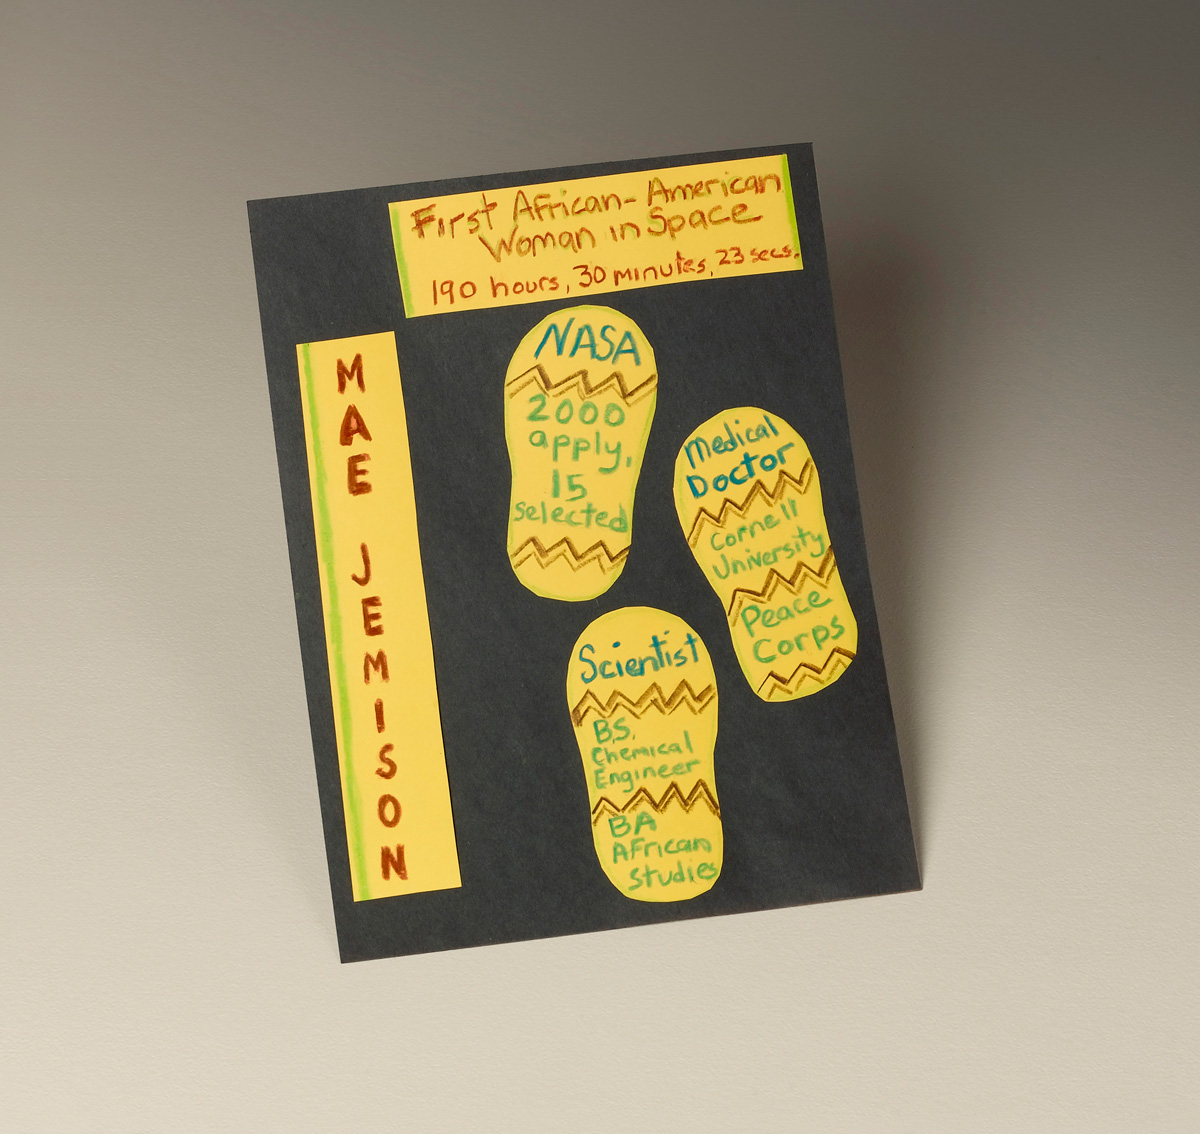 First African-American
Woman in Space
190 hours, 30 minutes, 23 secs.
MAE JEMISON
NASA
2000
apply,
15
selected
Medical
Doctor
Cornell
University
Peace
Corps
Scientist
B.S.
Chemical
Engineer
BA
African
Studies